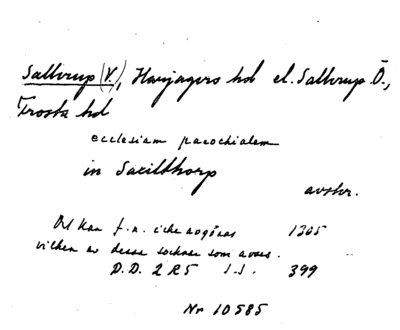 Sallerup (V.), Harjagers hd el. Sallerup Ö.,
Frosta hd
ecclesiam parochialem
in Saxilthorp
avskr.
Det kan f.n. icke avgöras 1305
vilken av dessa socknar som avses.
D.D. 2 R5 s. 399
Nr 10585